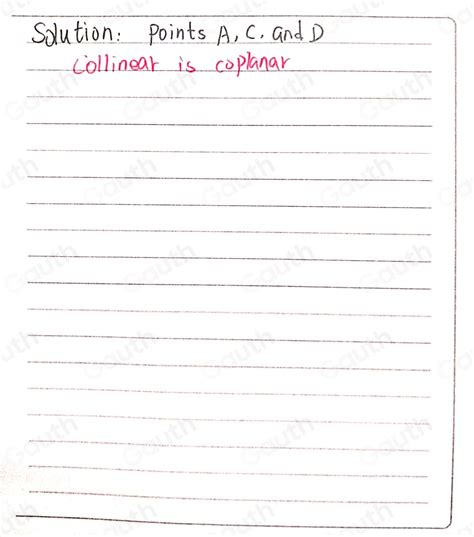 Solution: Points A, C, and D
Collinear is coplanar